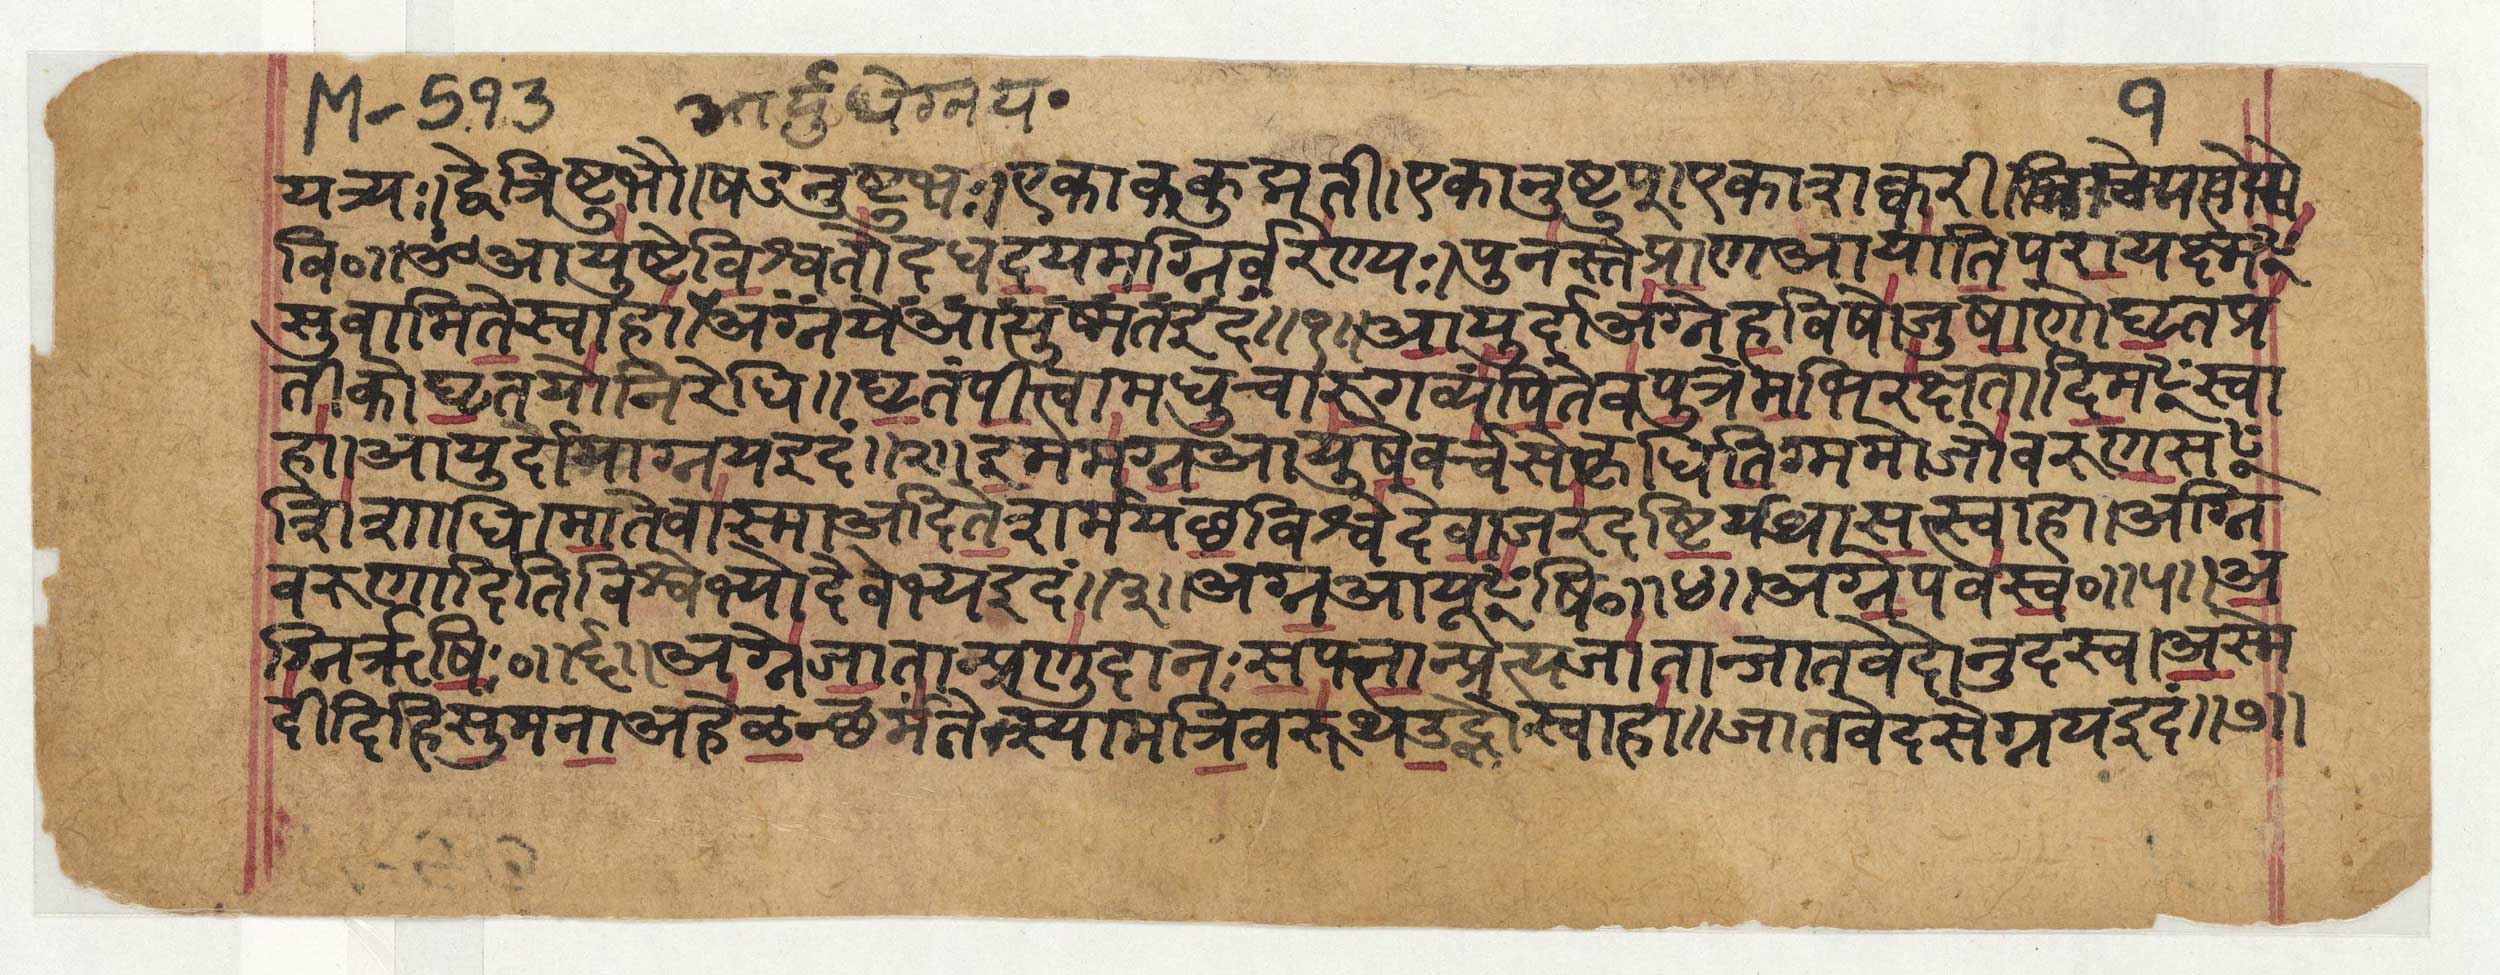 M-593 आर्युधेग्नय• १
यत्र्यः।द्वेत्रिष्टुभौ।षडनुष्टुभः।एकाककुद्मती।एकानुष्टुप्।एकाशक्वरी।
वि०॥ॐआयुष्टेविश्वतोदधदयमग्निर्वरेण्यः।पुनस्तेप्राणआयातिपरायक्ष्मꣳ
सुवामितेस्वाहा।अग्नयेआयुष्मतइदं॥१॥आयुर्दाअग्नेहविषोजुषाणोघृतप्र
तीकोघृतयोनिरेधि॥घृतंपीत्वामधुचारुगव्यंपितेवपुत्रमभिरक्षतादिमꣳस्वा
हा।आयुर्दायाग्नयइदं॥२॥इममग्नआयुषेवर्चसेकृधितिग्ममोजोवरुणसꣳ
शिशाधि।मातेवास्माअदितेशर्मयछविश्वेदेवाजरदष्टिर्यथासत्स्वाहा।अग्नि
वरुणादितिविश्वेभ्योदेवेभ्यइदं॥३॥अग्नआयूꣳषि०॥४॥अग्नेपवस्व०॥५॥अ
ग्निरृषिः०॥६॥अग्नेजातान्प्रणुदानःसपत्नान्प्रत्यजातान्जातवेदोनुदस्व।अस्मे
दीदिहिसुमनाअहेळन्छर्मतेस्यामत्रिवरूथउद्भौस्वाहा॥जातवेदसेग्नयइदं॥७॥